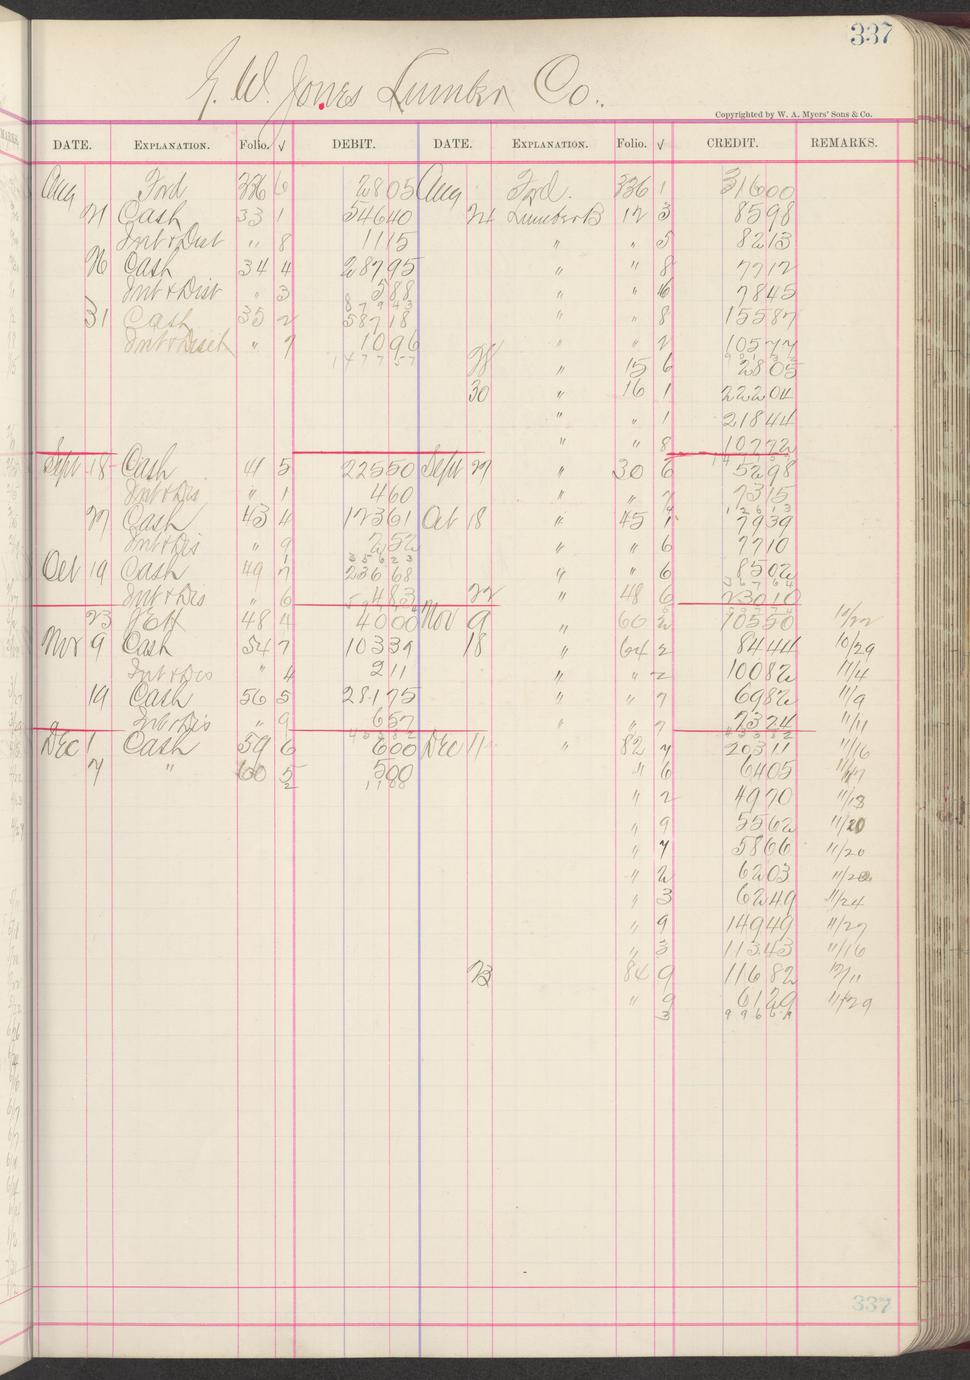 337
G. W. Jones Lumber Co.
Copyrighted by W. A. Myers' Sons & Co.
DATE. EXPLANATION. Folio. √ DEBIT. DATE. EXPLANATION. Folio. √ CREDIT. REMARKS.
Aug Ford 336 6 2805 Aug Ford. 336 1 31600
21 Cash 33 1 54640 24 Lumber B 12 3 8598
Int & Dist " 8 1115 " " 5 8213
26 Cash 34 4 28795 " " 8 7712
Int & Dist " 3 588 " " 6 7845
87943
31 Cash 35 2 58718 " " 8 15587
Int & Disct " 7 1096 " " 2 10577
147757
28 " 15 6 2805
30 " 16 1 22204
" " 1 21844
" " 8 10772
Sept 18 Cash 41 5 22550 Sept 27 " 30 6 5298
Int & Dis " 1 460 " " 7 7315
12613
27 Cash 43 4 12361 Oct 18 " 45 1 7939
Int & Dis " 9 252 " " 6 7710
35623
Oct 19 Cash 49 7 23668 " " 6 8502
36764
Int & Dis " 6 483 22 " 48 6 23010
23 JEH 48 4 4000 Nov 9 " 60 2 10550 10/22
Nov 9 Cash 54 7 10339 18 " 64 2 8444 10/29
Int & Dis " 4 211 " " 2 10082 11/4
19 Cash 56 5 28175 " " 7 6982 11/9
Int & Dis " 9 657 " " 7 7324 11/11
Dec 1 Cash 59 6 600 Dec 11 " 82 7 20311 11/16
7 " 60 5 500 " 6 6405 11/17
2 1100
" 2 4970 11/18
" 9 5562 11/20
" 7 5866 11/20
" 2 6203
" 3 6249 11/24
" 9 14949 11/27
" 3 11343 11/16
23 84 9 11682 12/11
" 9 6129 11/29
3
337